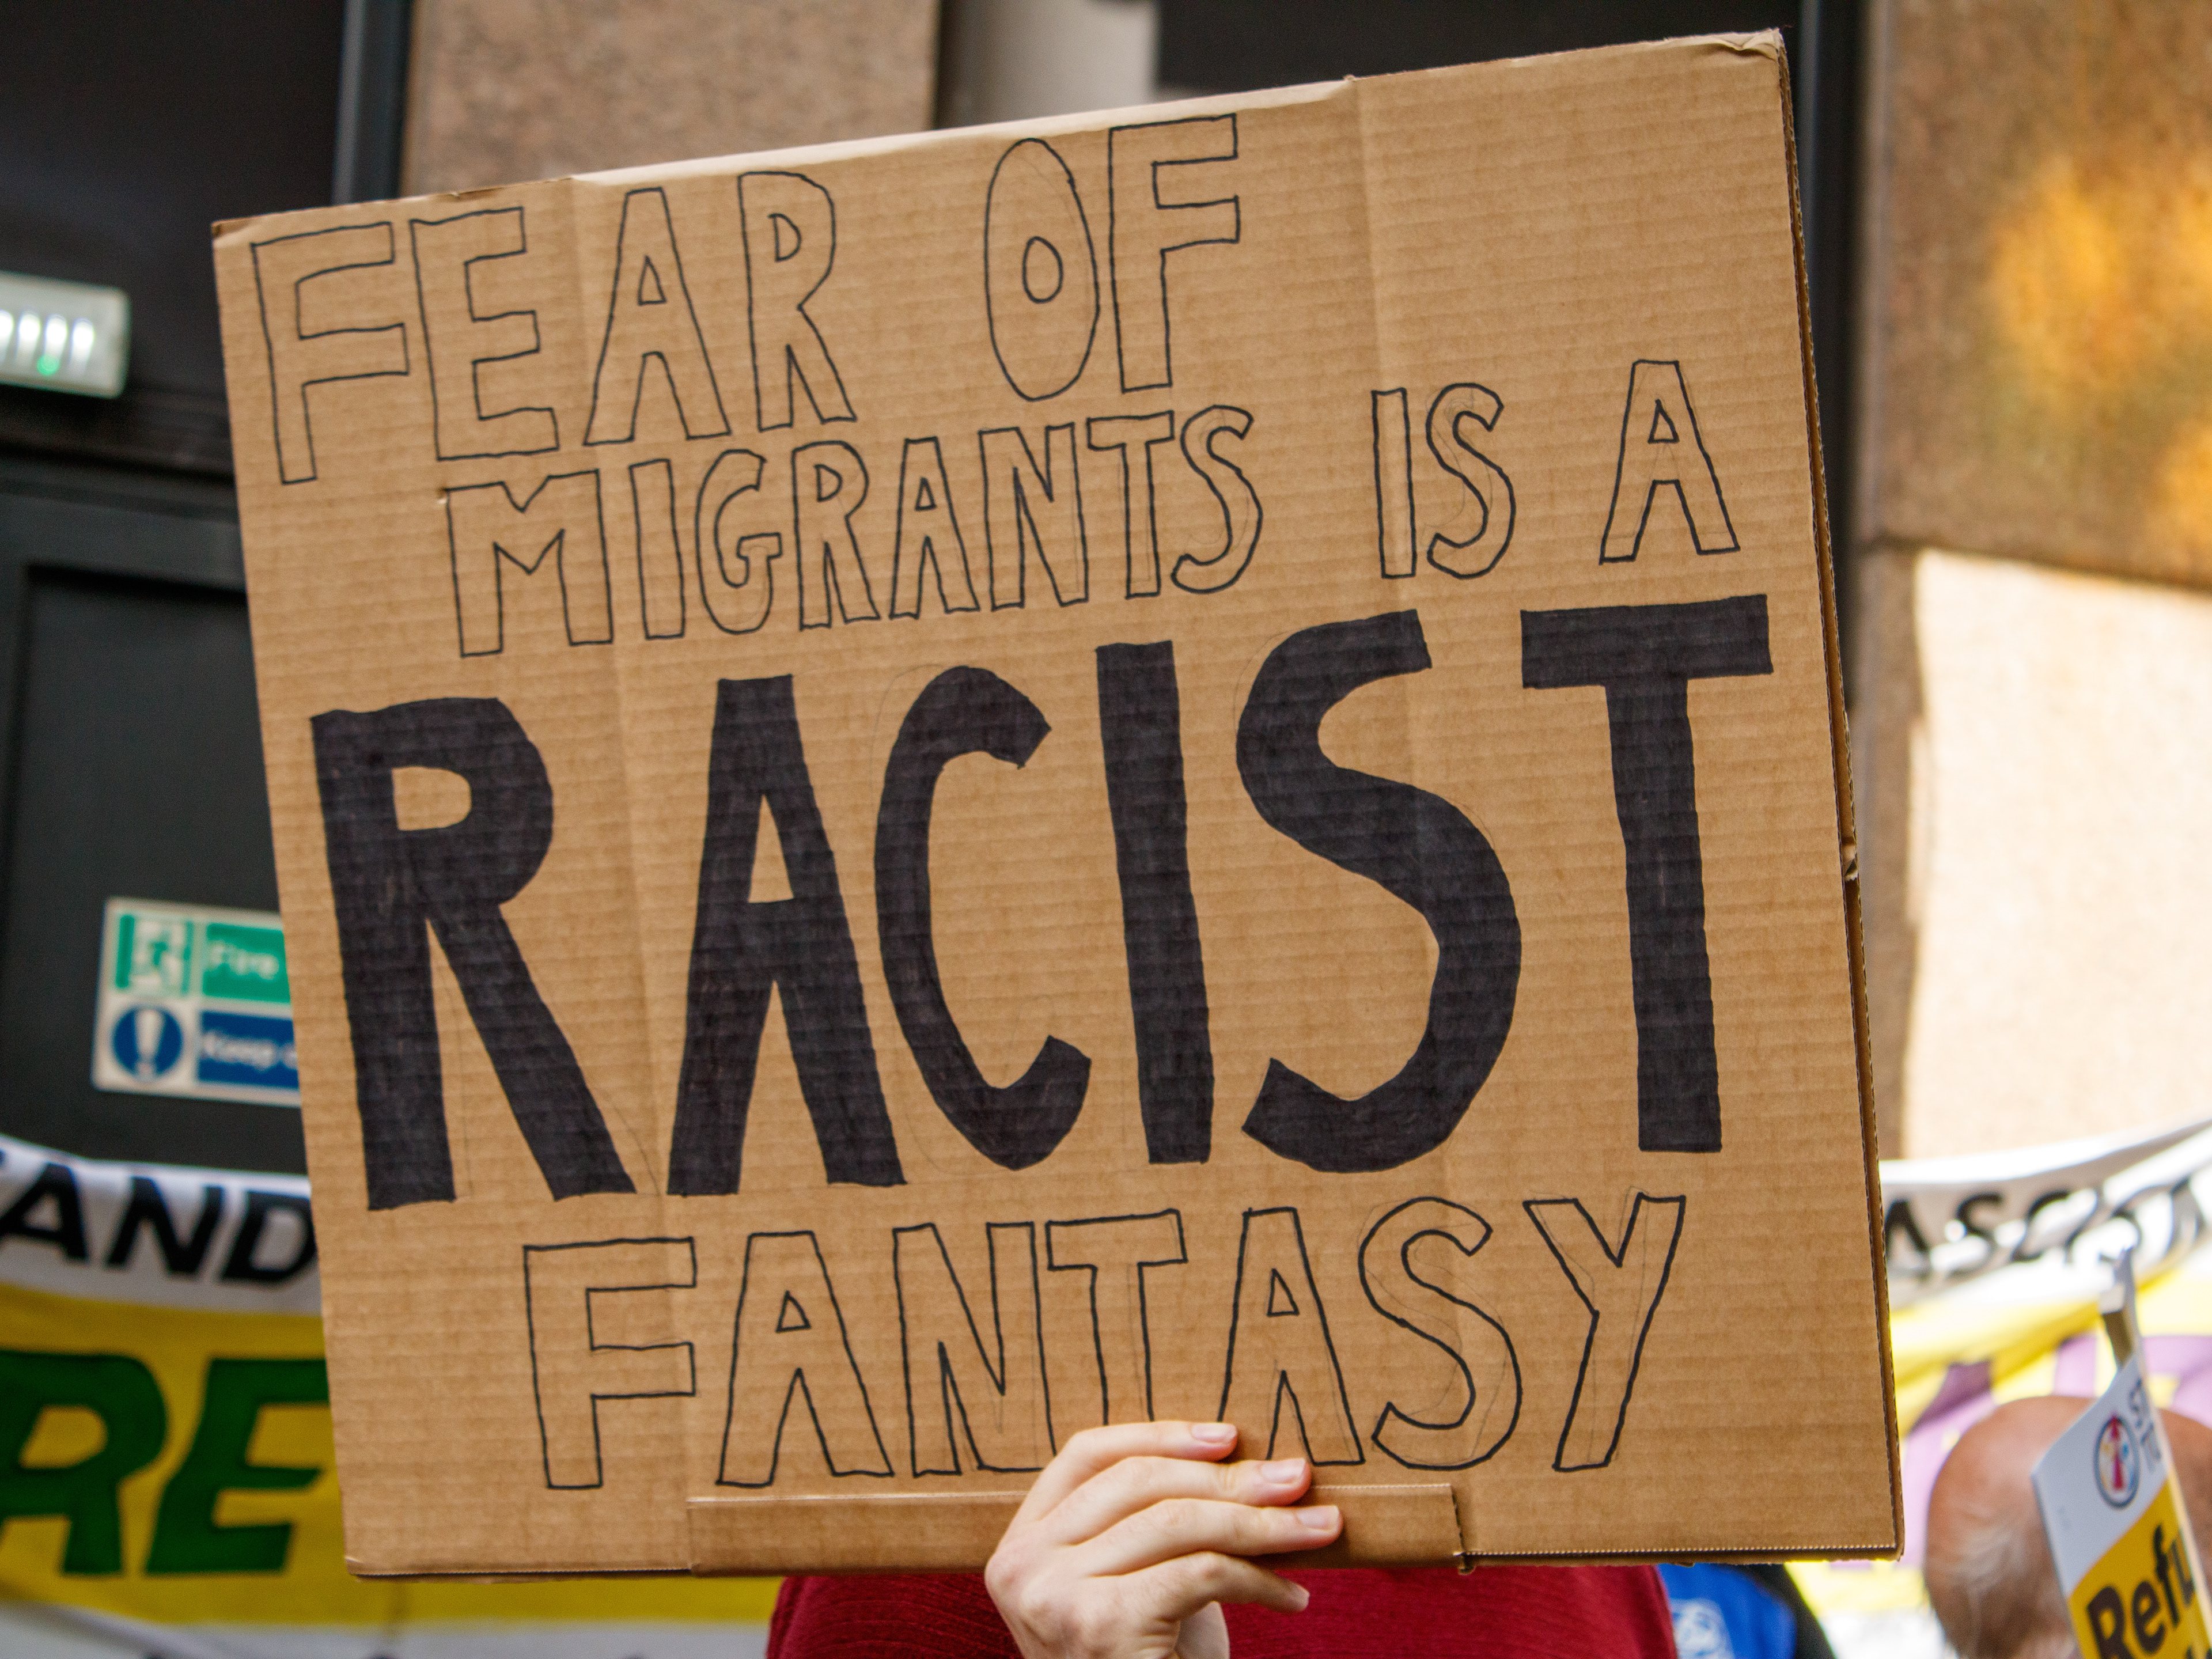 FEAR OF
MIGRANTS IS A
RACIST
FANTASY
Fire
Keep
AND
RE